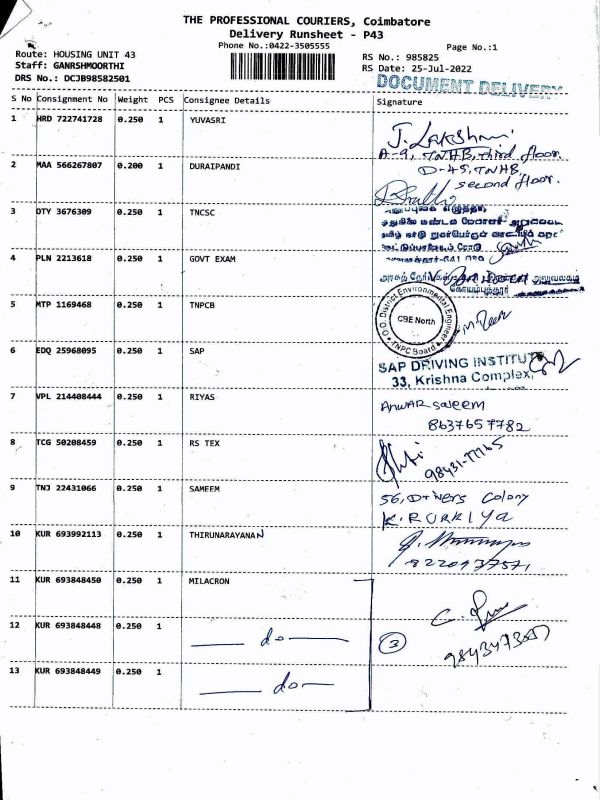 THE PROFESSIONAL COURIERS, Coimbatore
Delivery Runsheet - P43
Phone No.:0422-3505555
Page No.:1
Route: HOUSING UNIT 43
RS No.: 985825
Staff: GANRSHMOORTHI
RS Date: 25-Jul-2022
DRS No.: DCJB98582501
DOCUMENT DELIVERY
S No Consignment No Weight PCS Consignee Details Signature
1 HRD 722741728 0.250 1 YUVASRI
J. Lakshmi
A-9, TNHB, third floor.
2 MAA 566267807 0.200 1 DURAIPANDI
D-45, TNHB
second floor.
3 DTY 3676309 0.250 1 TNCSC
4 PLN 2213618 0.250 1 GOVT EXAM
கோயம்புத்தூர்
5 MTP 1169468 0.250 1 TNPCB
O/O. District Environmental Engineer
CBE North
TNPC Board
6 EDQ 25968095 0.250 1 SAP
SAP DRIVING INSTITUT
33, Krishna Complex,
7 VPL 214408444 0.250 1 RIYAS
Anwar saleem
8637657782
8 TCG 50208459 0.250 1 RS TEX
9 TNJ 22431066 0.250 1 SAMEEM
56, Drivers Colony
K. RUKKIYA
10 KUR 693992113 0.250 1 THIRUNARAYANAN
8220937571
11 KUR 693848450 0.250 1 MILACRON
12 KUR 693848448 0.250 1 — do —
3
13 KUR 693848449 0.250 1 — do —